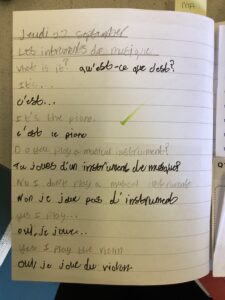 Jeudi 22 September
Les intruments de musique
what is it? qu'est-ce que c'est?
It's...
c'est...
It's the piano
c'est le piano
Do you play a musical instrument?
Tu joues d'un instrument de musique?
No I don't play a musical instrument
Non je joue pas d'instrument
yes I play...
oui, je joue...
Yes I play the violin
Oui, je joue du violon